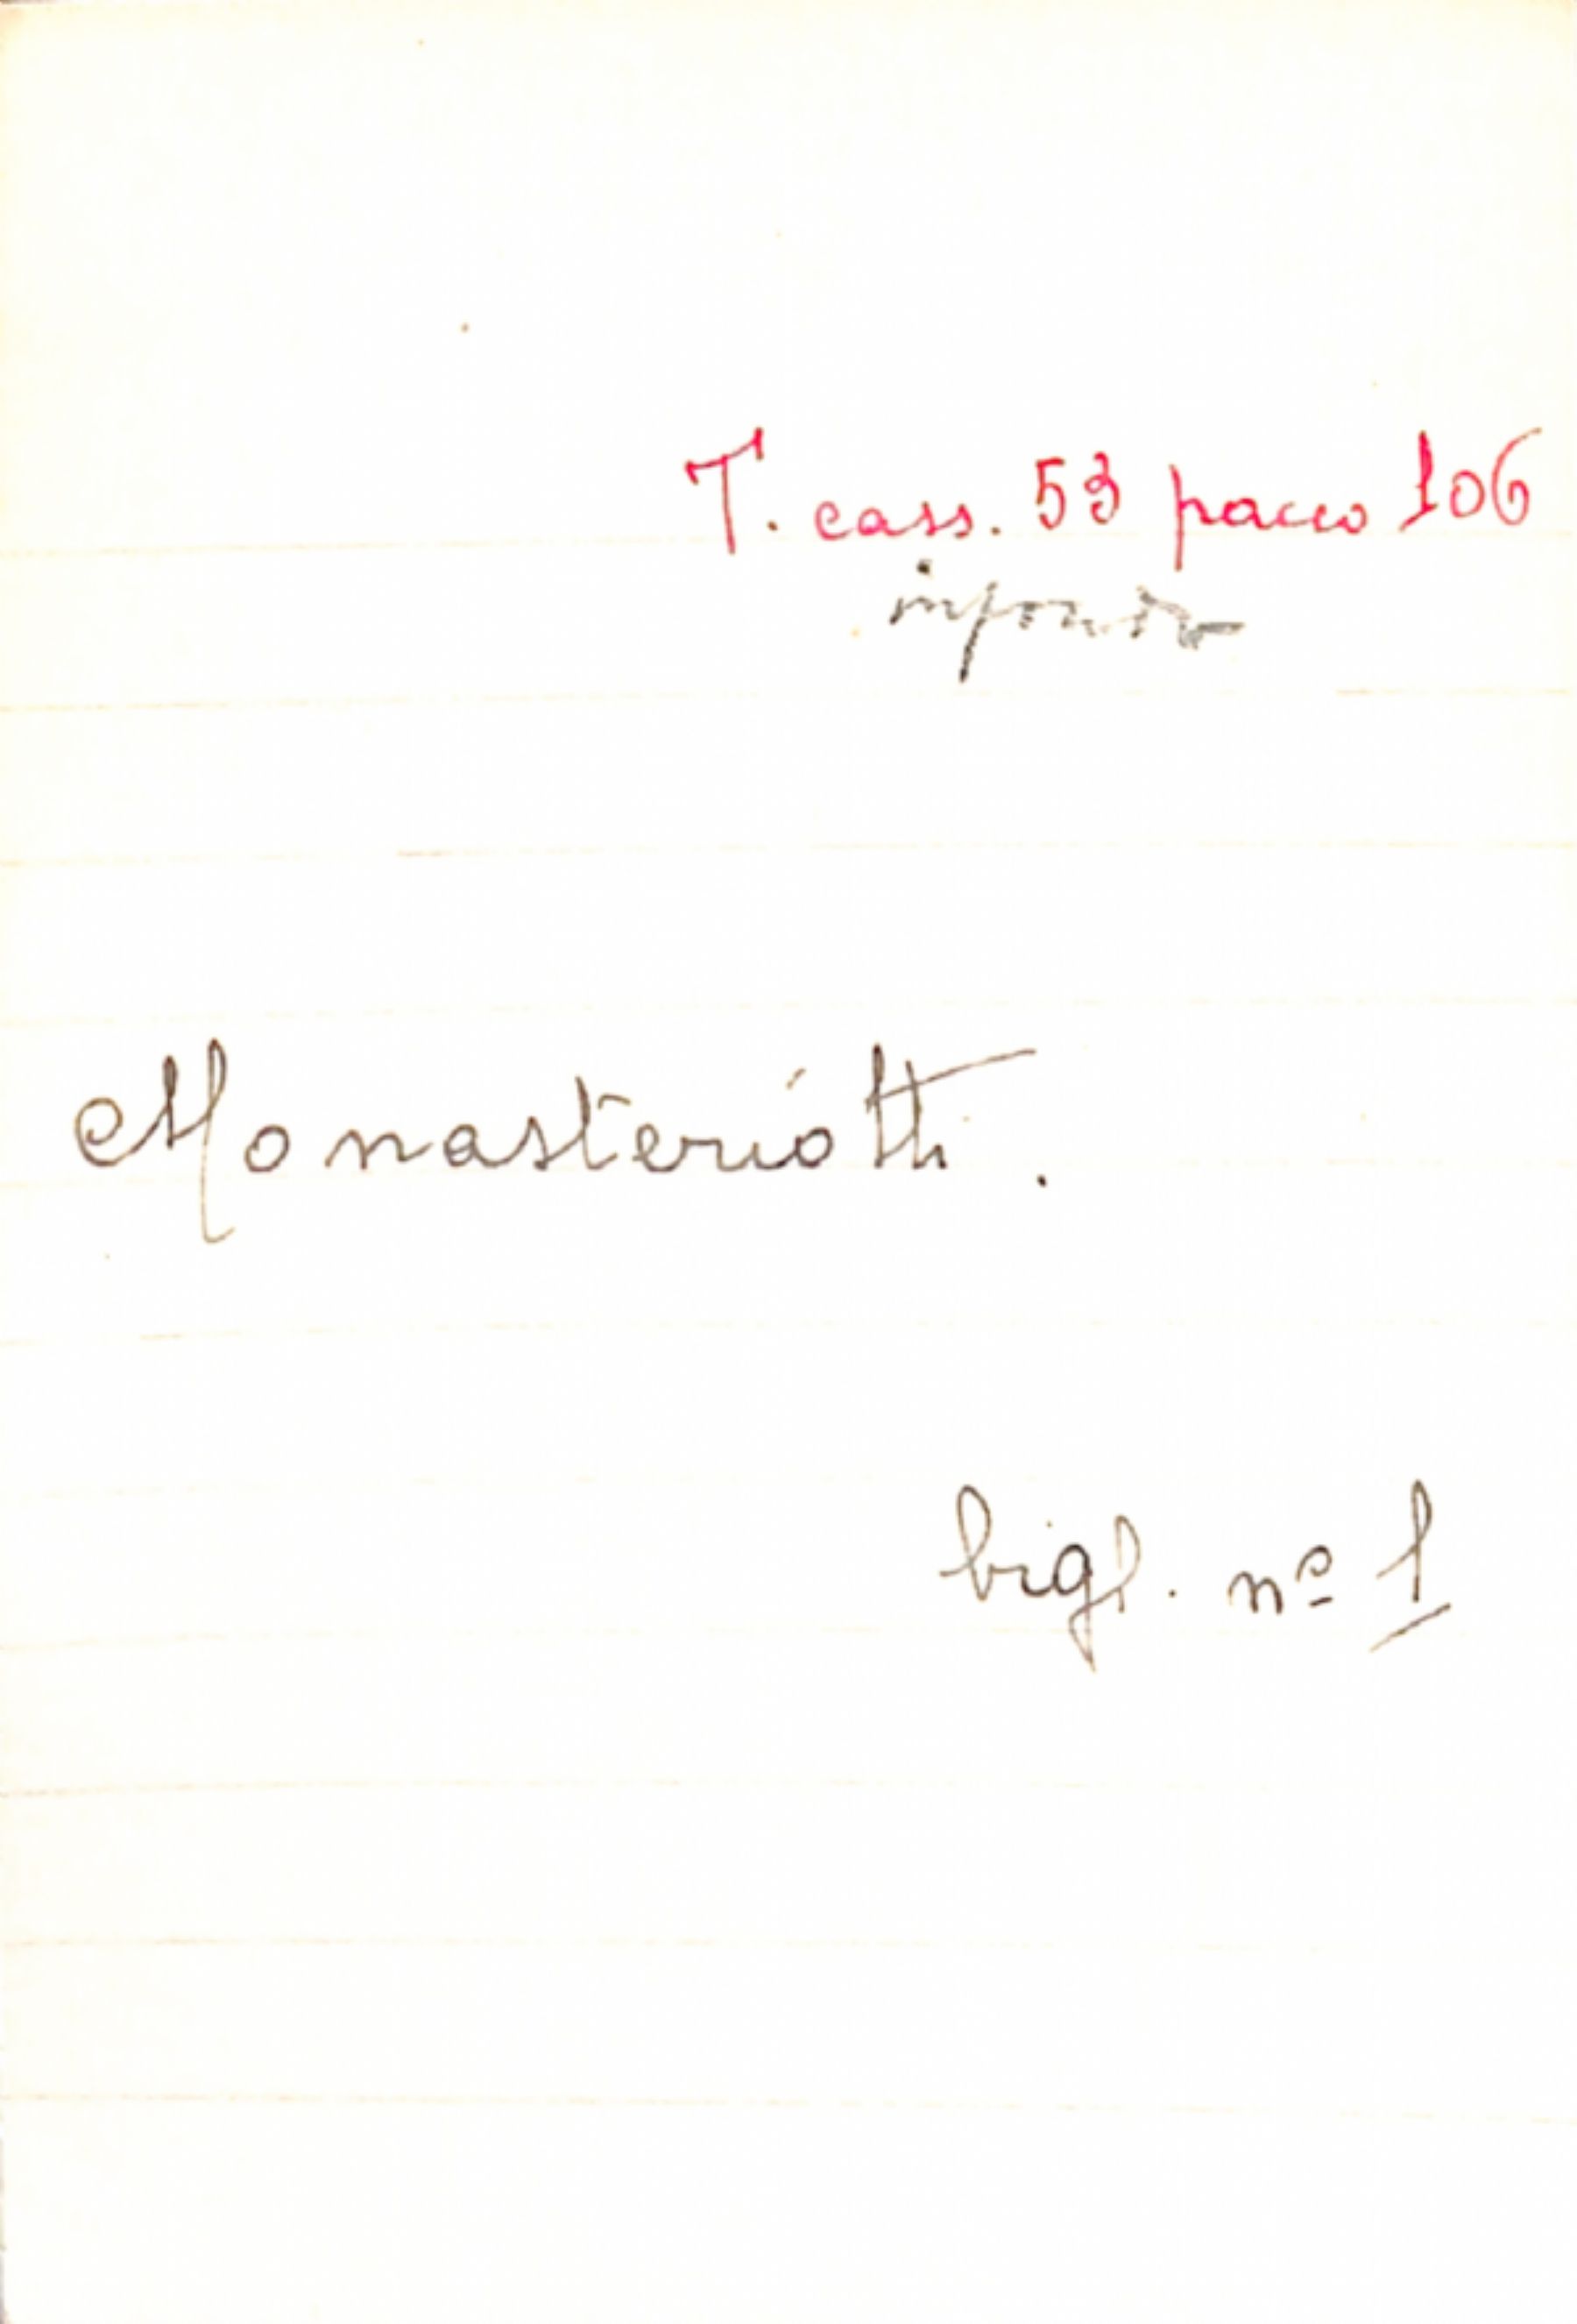 T. cass. 53 pacco 106
in fondo
Monasteriotti.
bigl. nº 1